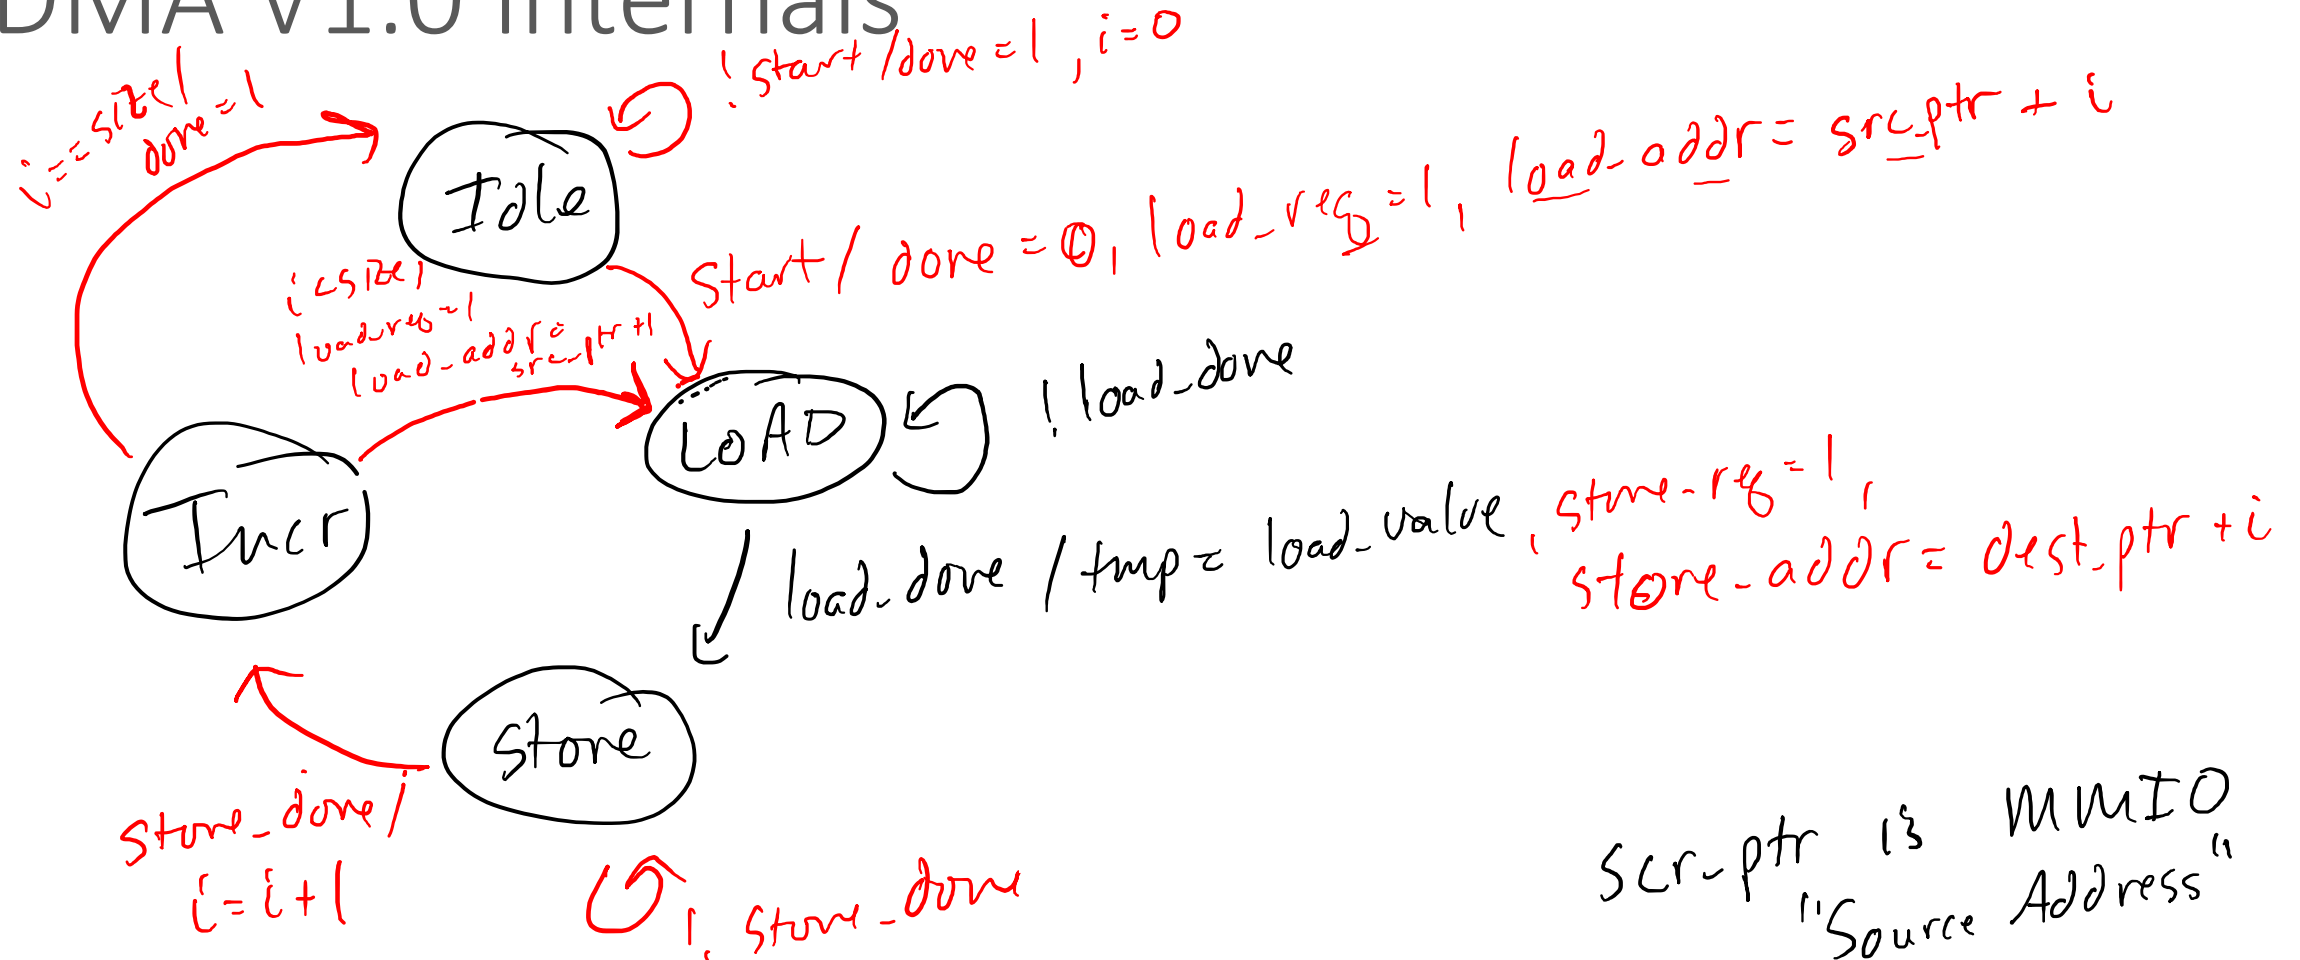 DMA V1.0 Internals
! start / done = 1 , i = 0
i == size /
done = 1
Idle
Start / done = 0, load_req = 1, load_addr = src_ptr + i
i < size /
load_req = 1
load_addr =
src_ptr + i
LOAD
! load_done
Incr
load_done / tmp = load_value, store_req = 1,
store_addr = dest_ptr + i
Store
store_done /
i = i + 1
! store_done
scr_ptr is MMIO
"Source Address"